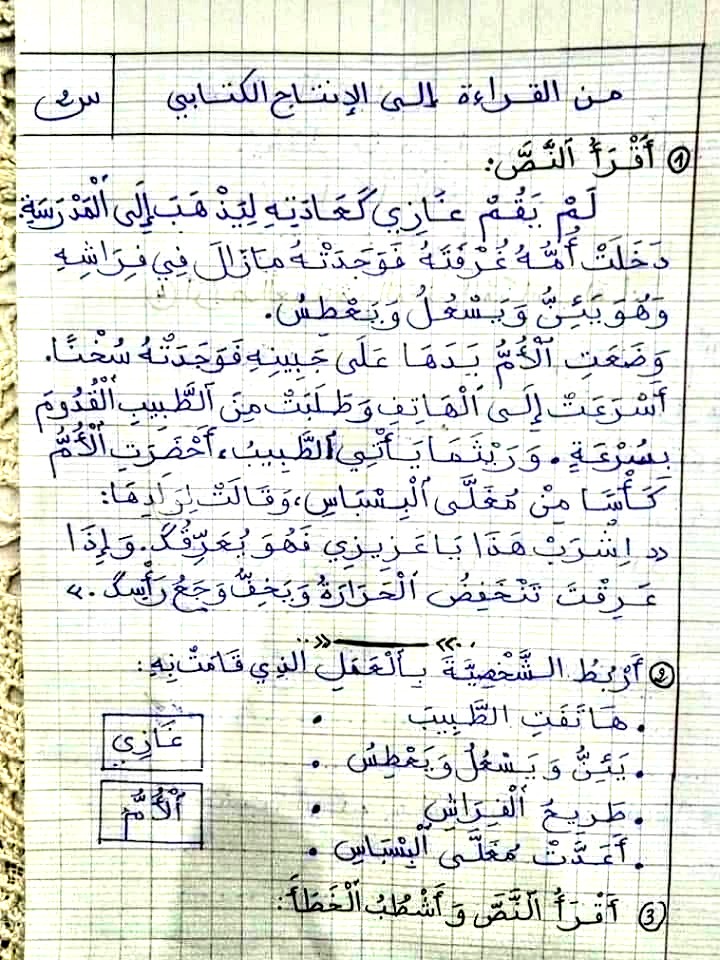 من القراءة إلى الإنتاج الكتابي
س2
① أَقْرَأُ ٱلنَّصَّ:
لَمْ يَقُمْ غَازِي كَعَادَتِهِ لِيَذْهَبَ إِلَى ٱلْمَدْرَسَةِ.
دَخَلَتْ أُمُّهُ غُرْفَتَهُ فَوَجَدَتْهُ مَازَالَ فِي فِرَاشِهِ
وَهُوَ يَئِنُّ وَيَسْعُلُ وَيَعْطِسُ.
وَضَعَتِ ٱلْأُمُّ يَدَهَا عَلَى جَبِينِهِ فَوَجَدَتْهُ سُخْنًا.
أَسْرَعَتْ إِلَى ٱلْهَاتِفِ وَطَلَبَتْ مِنَ ٱلطَّبِيبِ ٱلْقُدُومَ
بِسُرْعَةٍ. وَرَيْثَمَا يَأْتِي ٱلطَّبِيبُ، أَحْضَرَتِ ٱلْأُمُّ
كَأْسًا مِنْ مُغَلَّى ٱلْبِسْبَاسِ، وَقَالَتْ
« اِشْرَبْ هَذَا يَا عَزِيزِي فَهُوَ يُعَرِّقُكَ. وَإِذَا
عَرِقْتَ تَنْخَفِضُ ٱلْحَرَارَةُ وَيَخِفُّ وَجَعُ رَأْسِكَ. »
② أَرْبُطُ الشَّخْصِيَّةَ بِٱلْعَمَلِ الذِي قَامَتْ بِهِ:
• هَاتَفَتِ الطَّبِيبَ •
غَازِي
• يَئِنُّ وَيَسْعُلُ وَيَعْطِسُ •
• طَرِيحُ ٱلْفِرَاشِ •
ٱلْأُمُّ
• أَعَدَّتْ مُغَلَّى ٱلْبِسْبَاسِ •
③ أَقْرَأُ ٱلنَّصَّ وَأَشْطُبُ ٱلْخَطَأَ: